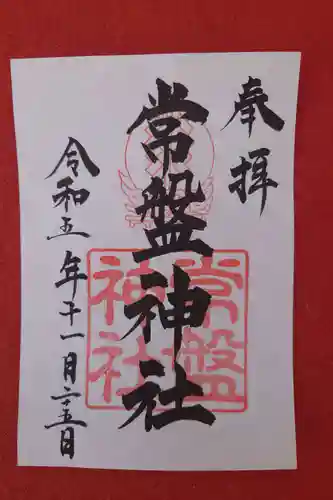 奉拝
常盤神社
常盤神社
令和五年十一月二十五日